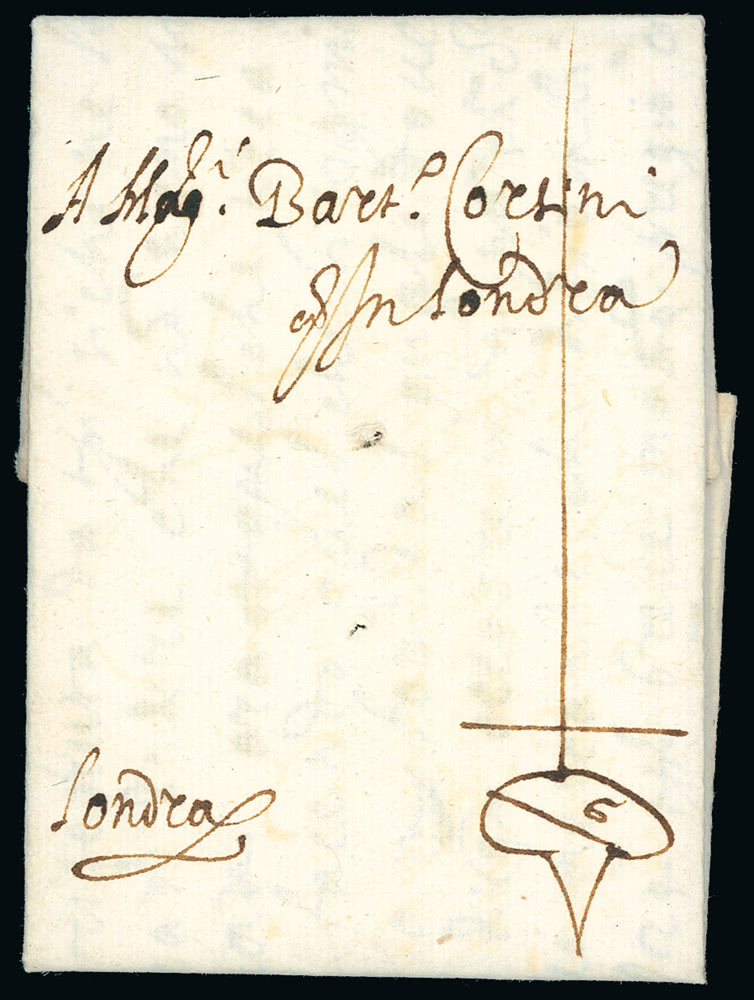 Al Mag.r Bart.o Corsini
In Londra
Londra
6